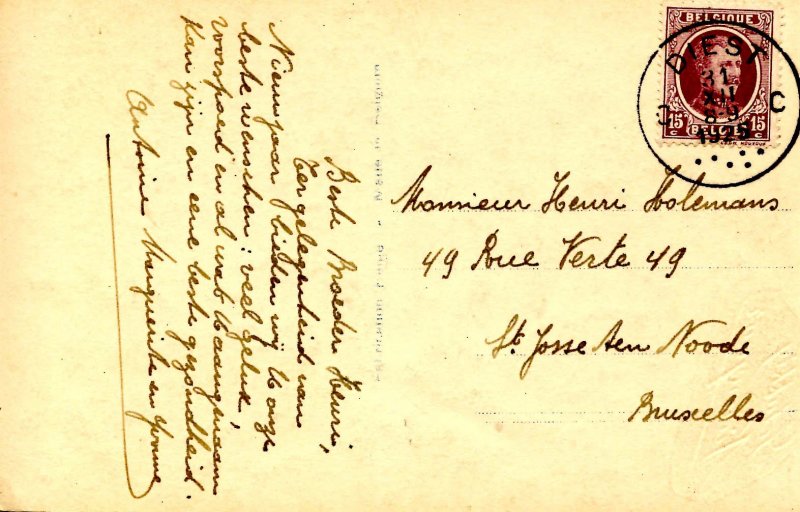 Beste Broeder Henri,
Ter gelegenheid van
Nieuwjaar bieden wij U onze
beste wenschen: veel geluk,
voorspoed en al wat U aangenaam
kan zijn en eene beste gezondheid.
Antoine Marguerite en Yvonne
BELGIQUE
DIEST
31
XII
8-9
C C
15 15
c BELGIË c
Monsieur Henri Holemans
49 Rue Verte 49
St. Josse ten Noode
Bruxelles